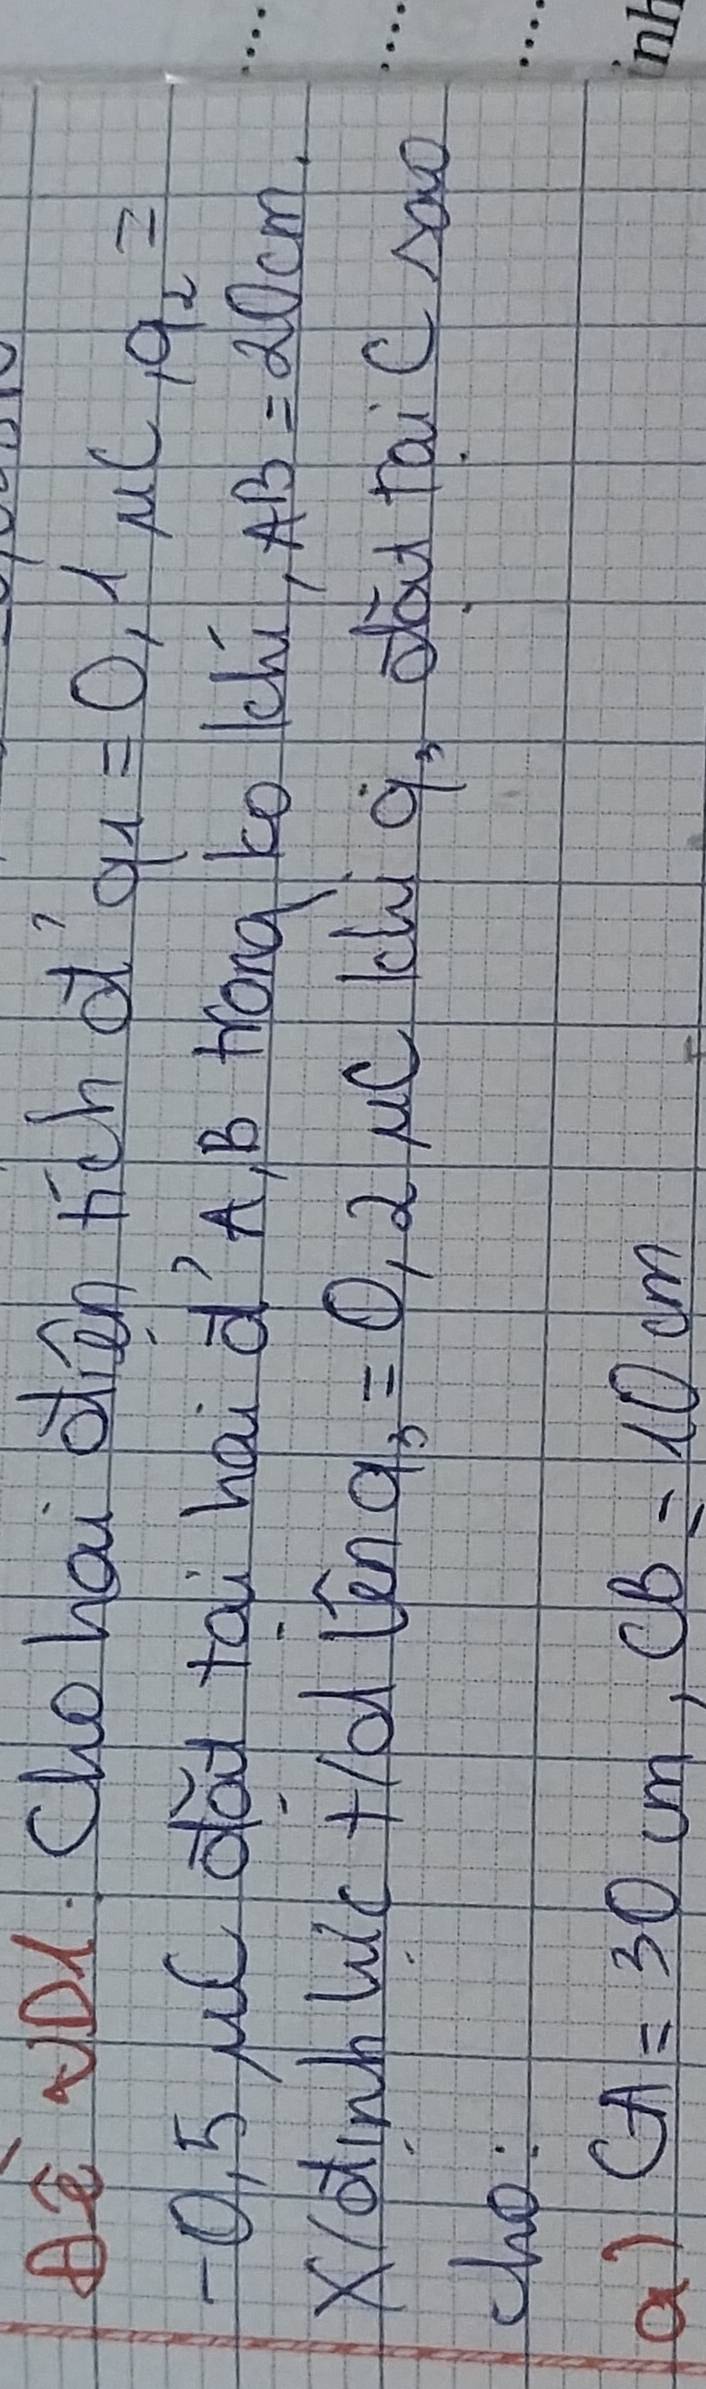 Đề VD1. Cho hai điện tích đ' q1 = 0,1 μC, q2 =
-0,5 μC đặt tại hai đ' A, B trong ko khí, AB = 20cm.
X/định lực t/d lên q3 = 0,2 μC khi q3 đặt tại C sao
cho:
a) CA = 30 cm, CB = 10 cm
inh